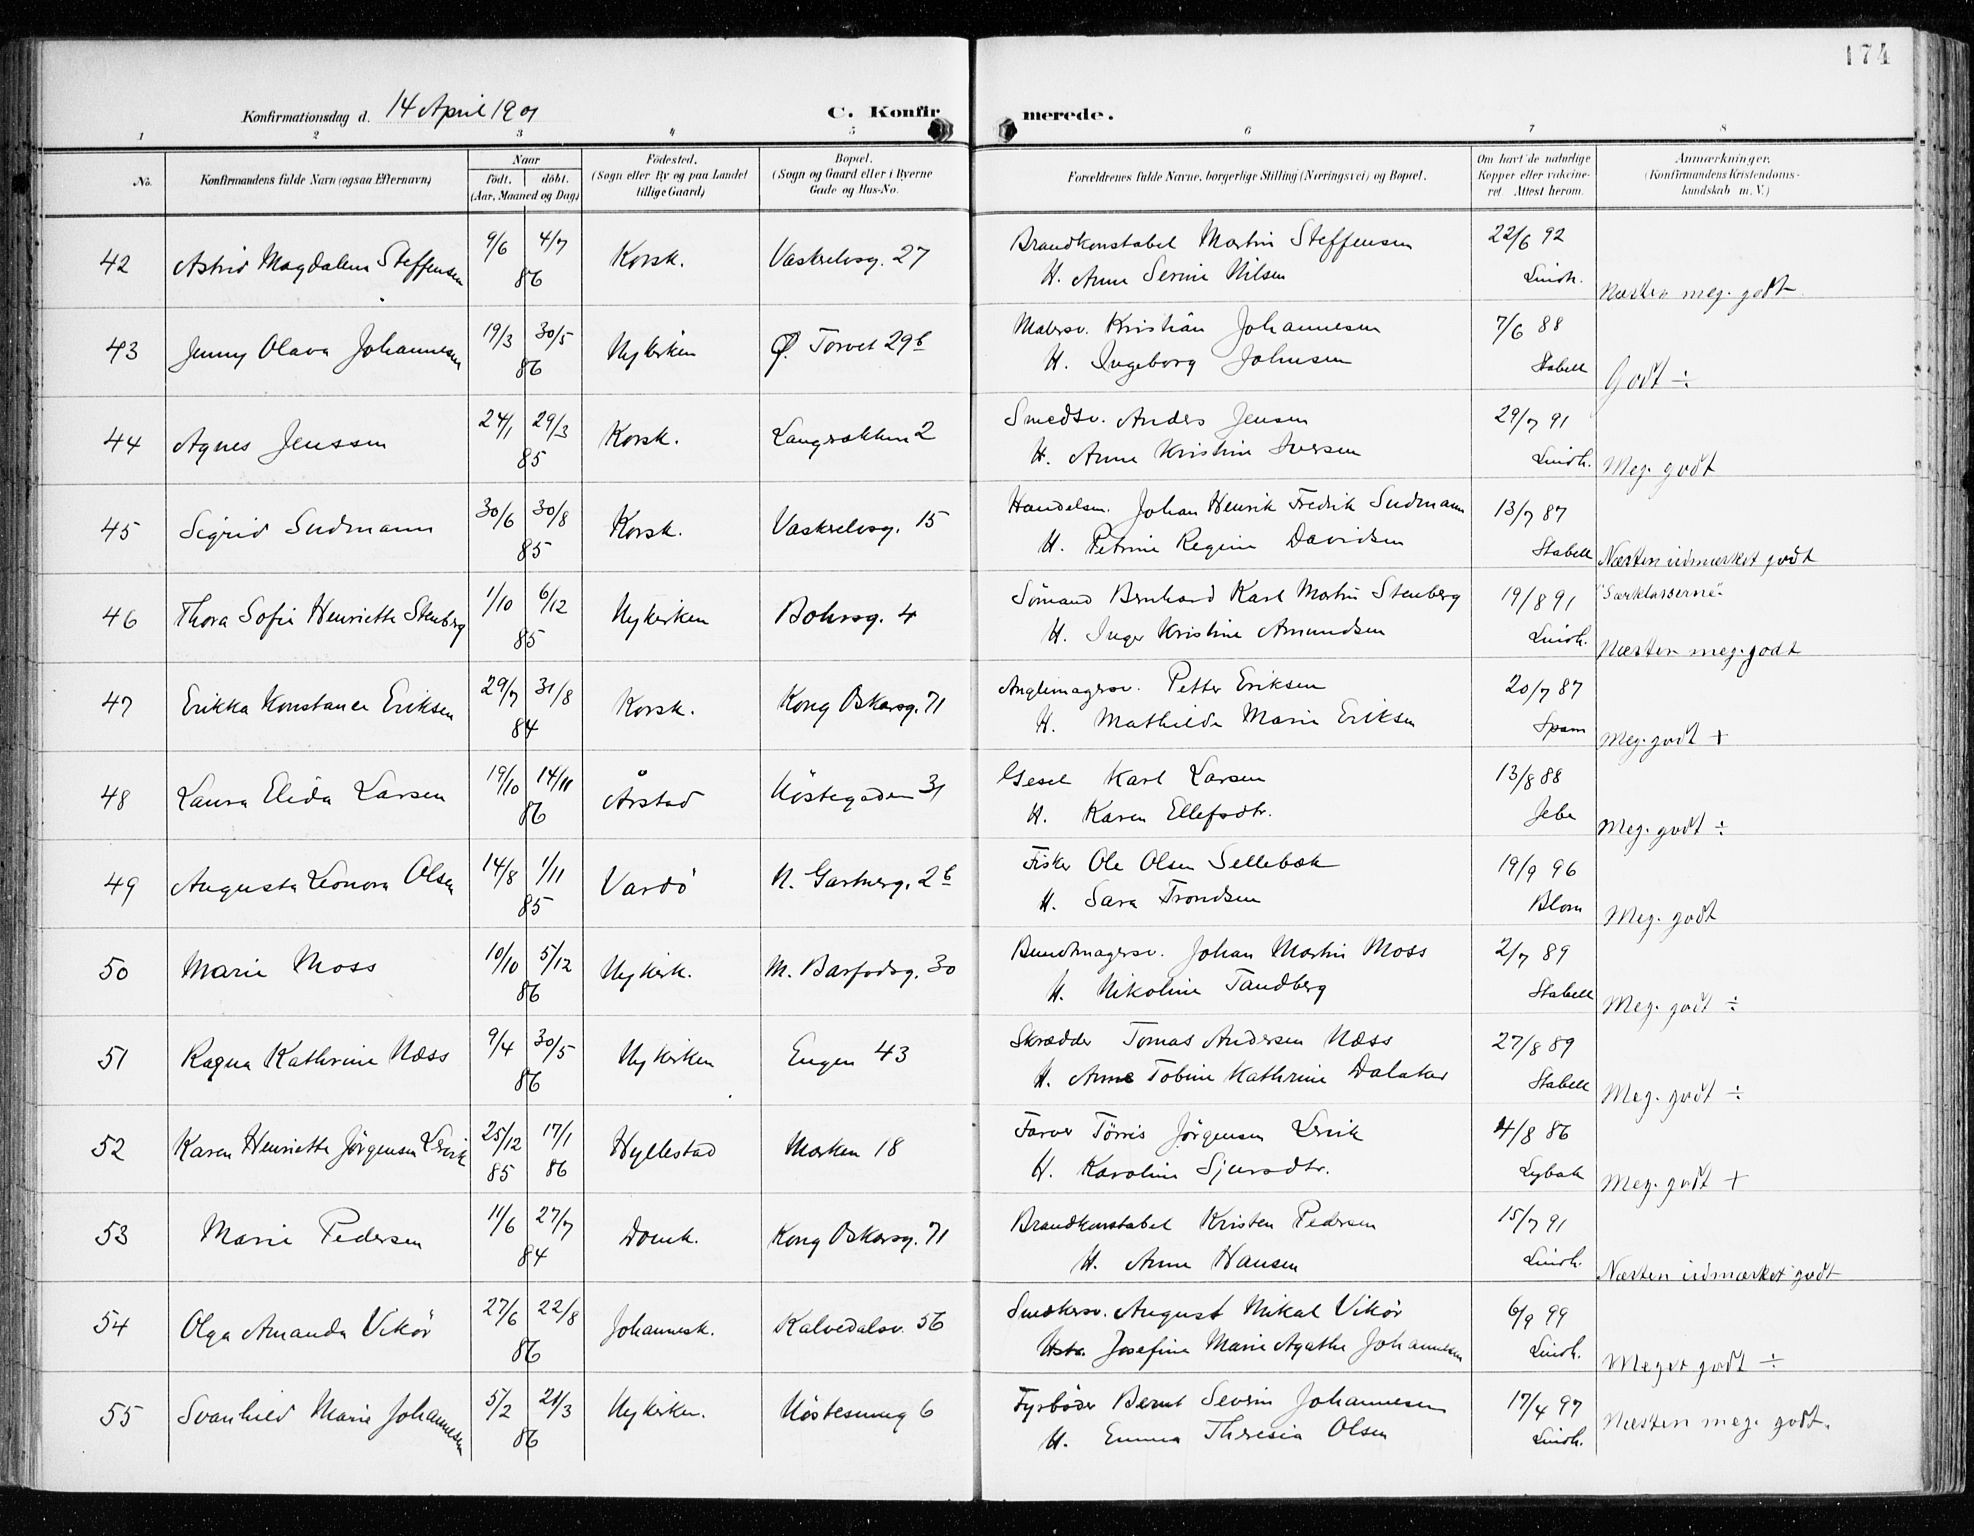 174
Konfirmationsdag d. 14 April 1901
C. Konfirmerede.
1 2 3 4 5 6 7 8
No.
Konfirmandens fulde Navn (ogsaa Efternavn)
Naar
födt. döbt.
(Aar, Maaned og Dag)
Födested.
(Sogn eller By og paa Landet
tillige Gaard)
Bopæl.
(Sogn og Gaard eller i Byerne
Gade og Hus-No.
Forældrenes fulde Navne, borgerlige Stilling (Næringsvei) og Bopæl.
Om havt de naturlige
Kopper eller vakcine-
ret. Attest herom.
Anmærkninger.
(Konfirmandens Kristendoms-
kundskab m. V.)
42 Astrid Magdalena Steffensen 9/6 4/7 86 Korsk. Vaskrelvsg. 27 Brandkonstabel Martin Steffensen 22/6 92
H. Anne Serine Nilsen Lindh. Næsten meg. godt
43 Jenny Olava Johannesen 19/3 30/5 86 Nykirken Ø. Torvet 29b Malersv. Kristian Johannesen 7/6 88
H. Ingeborg Johnsen Stabell Godt ÷
44 Agnes Jenssen 24/1 29/3 85 Korsk. Langrækken 2 Smedsv. Anders Jensen 29/7 91
H. Anne Kristine Iversen Lindh. Meg. godt
45 Sigrid Sudmann 30/6 30/8 85 Korsk. Vaskrelvsg. 15 Handelsm. Johan Henrik Fredrik Sudmann 13/7 87
H. Petrine Regine Davidsen Stabell Næsten udmærket godt
46 Thora Sofie Henriette Stenberg 1/10 6/12 85 Nykirken Bohrsg. 4 Sömand Bernhard Karl Martin Stenberg 19/8 91 "Særklasserne"
H. Inger Kristine Amundsen Lindh. Næsten meg. godt
47 Erikka Konstance Eriksen 29/7 31/8 84 Korsk. Kong Oskarsg. 71 Anglimagersv. Petter Eriksen 20/7 87
H. Mathilde Marie Eriksen Spam Meg. godt +
48 Laura Elida Larsen 19/10 14/11 86 Årstad Nöstegaden 31 Gesel Karl Larsen 13/8 88
H. Karen Ellefsdtr. Jebe Meg. godt ÷
49 Augusta Leonora Olsen 14/8 1/11 85 Vardö N. Gartnerg. 2b Fisker Ole Olsen Sellebæk 19/9 96
H. Sara Trondsen Blom Meg. godt
50 Marie Moss 10/10 5/12 86 Nykirk. M. Barfodsg. 30 Bundtmagersv. Johan Martin Moss 2/7 89
H. Nikoline Tandberg Stabell Meg. godt ÷
51 Ragna Kathrine Næss 9/4 30/5 86 Nykirken Engen 43 Skrædder Tomas Andersen Næss 27/8 89
H. Anne Tobine Kathrine Dalaker Stabell Meg. godt ÷
52 Karen Henriette Jörgensen Lervik 25/12 85 17/1 86 Hyllestad Marken 18 Farver Törris Jörgensen Lervik 4/8 86
H. Karoline Sjursdtr. Lybæk Meg. godt +
53 Marie Pedersen 11/6 27/7 84 Domk. Kong Oskarsg. 71 Brandkonstabel Kristen Pedersen 15/7 91
H. Anne Hansen Lindh. Næsten udmærket godt
54 Olga Amanda Vikör 27/6 22/8 86 Johannesk. Kalvedalsv. 56 Snedkersv. August Mikal Vikör 6/9 99
Hstr. Josefine Marie Agathe Johannesen Lindh. Meget godt ÷
55 Svanhild Marie Johannesen 5/2 21/3 86 Nykirken. Nöstesmug 6 Fyrböder Bernt Severin Johannesen 17/4 97
H. Emma Theresia Olsen Lindh. Næsten meg. godt.